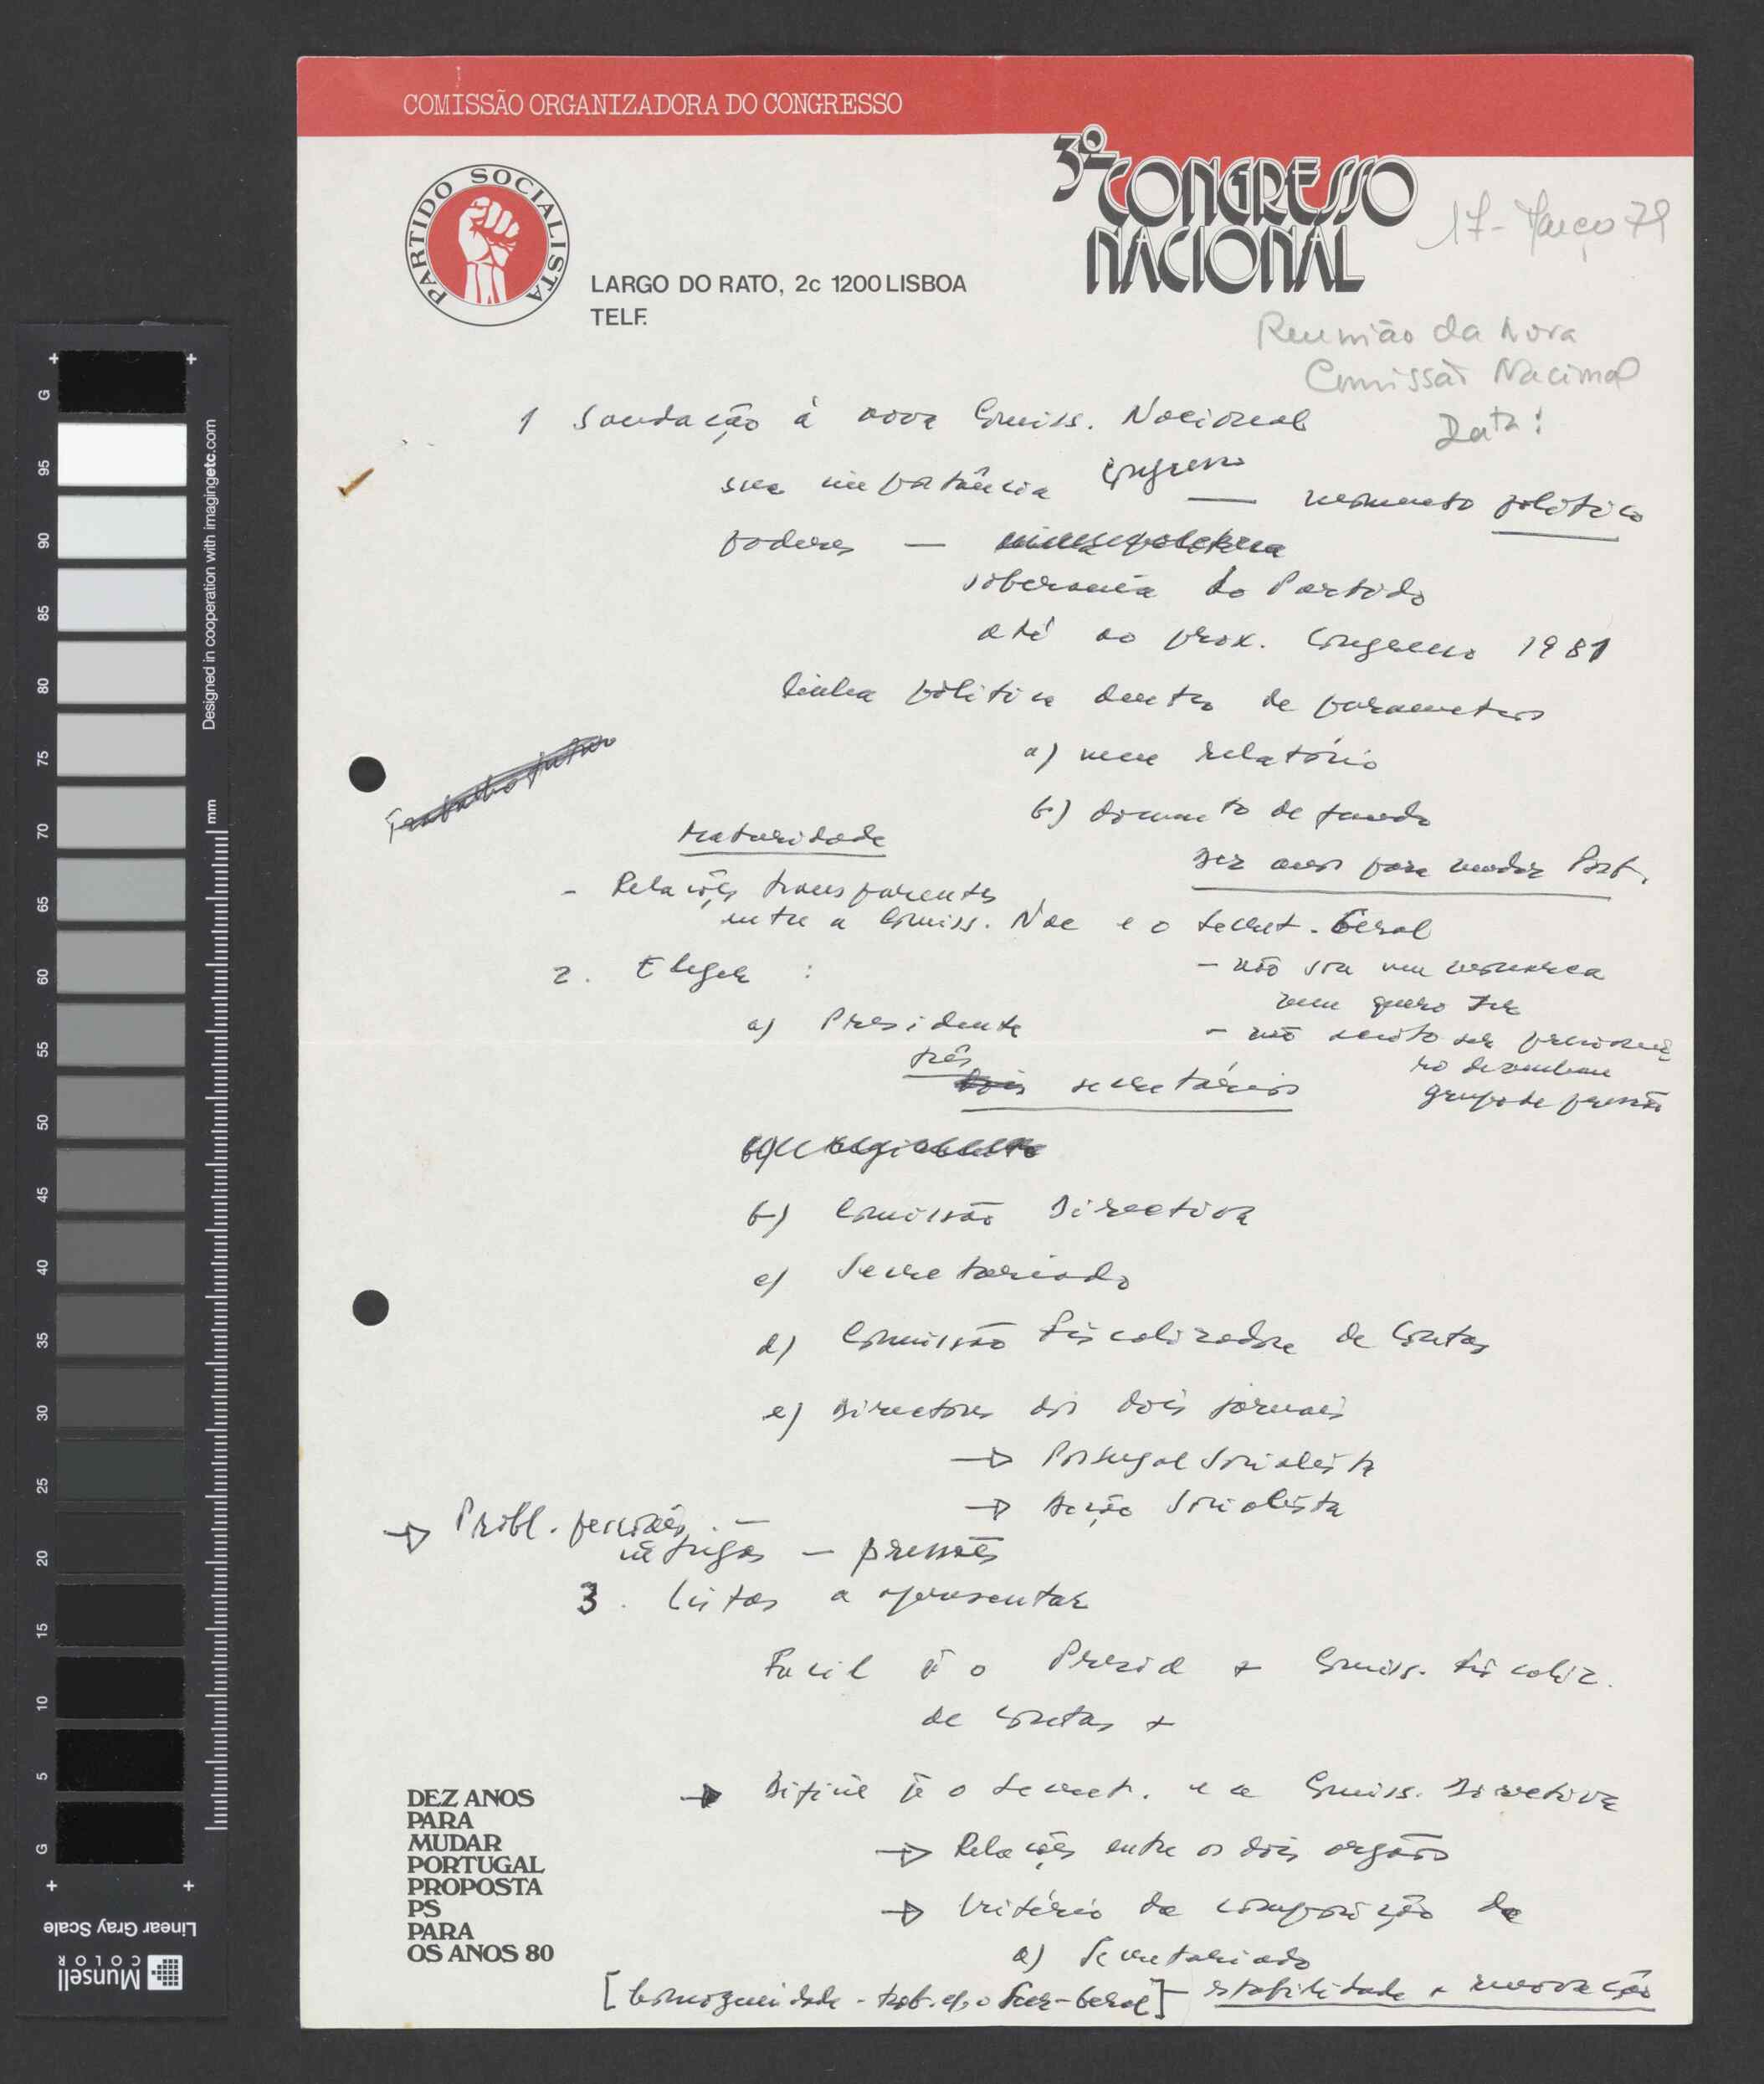 COMISSÃO ORGANIZADORA DO CONGRESSO
3º CONGRESSO
NACIONAL
PARTIDO SOCIALISTA
LARGO DO RATO, 2c 1200 LISBOA
TELF.
17 - Março 79
Reunião da Nova
Comissão Nacional
Data:
1 Saudação à nova Comiss. Nacional
sua importância Congresso — momento político
poderes —
soberania do Partido
até ao prox. Congresso 1981
linha política dentro de parametros
a) meu relatório
b) documento de fundo
Trabalho futuro
Maturidade
Dez anos para mudar Port.
- Relações transparentes
entre a Comiss. Nac e o Secret. Geral
- não sou um monarca
nem quero ser
- não aceito ser prisionei
ro de nenhum
grupo de pressão
2. Eleger :
a) Presidente
três
dois secretários
b) Comissão Directiva
c) Secretariado
d) Comissão Fiscalizadora de Contas
e) Directores dos dois jornais
→ Portugal Socialista
→ Acção Socialista
→ Probl. pessoais. —
intrigas — pressões
3. Listas a apresentar
Facil é o Presid + Comiss. Fiscaliz.
de Contas +
→ Dificil é o Secret. e a Comiss. Directiva
→ Relações entre os dois orgãos
→ Critério da composição da
a) Secretariado
[homogeneidade - trab. c/ o Secr-Geral] - estabilidade e renovação
DEZ ANOS
PARA
MUDAR
PORTUGAL
PROPOSTA
PS
PARA
OS ANOS 80
+ +
G 95 90 85 80 75 70 65 60 55 50 45 40 35 30 25 20 15 10 5 G
Designed in cooperation with imagingetc.com
mm
+ +
Linear Gray Scale
Munsell
COLOR